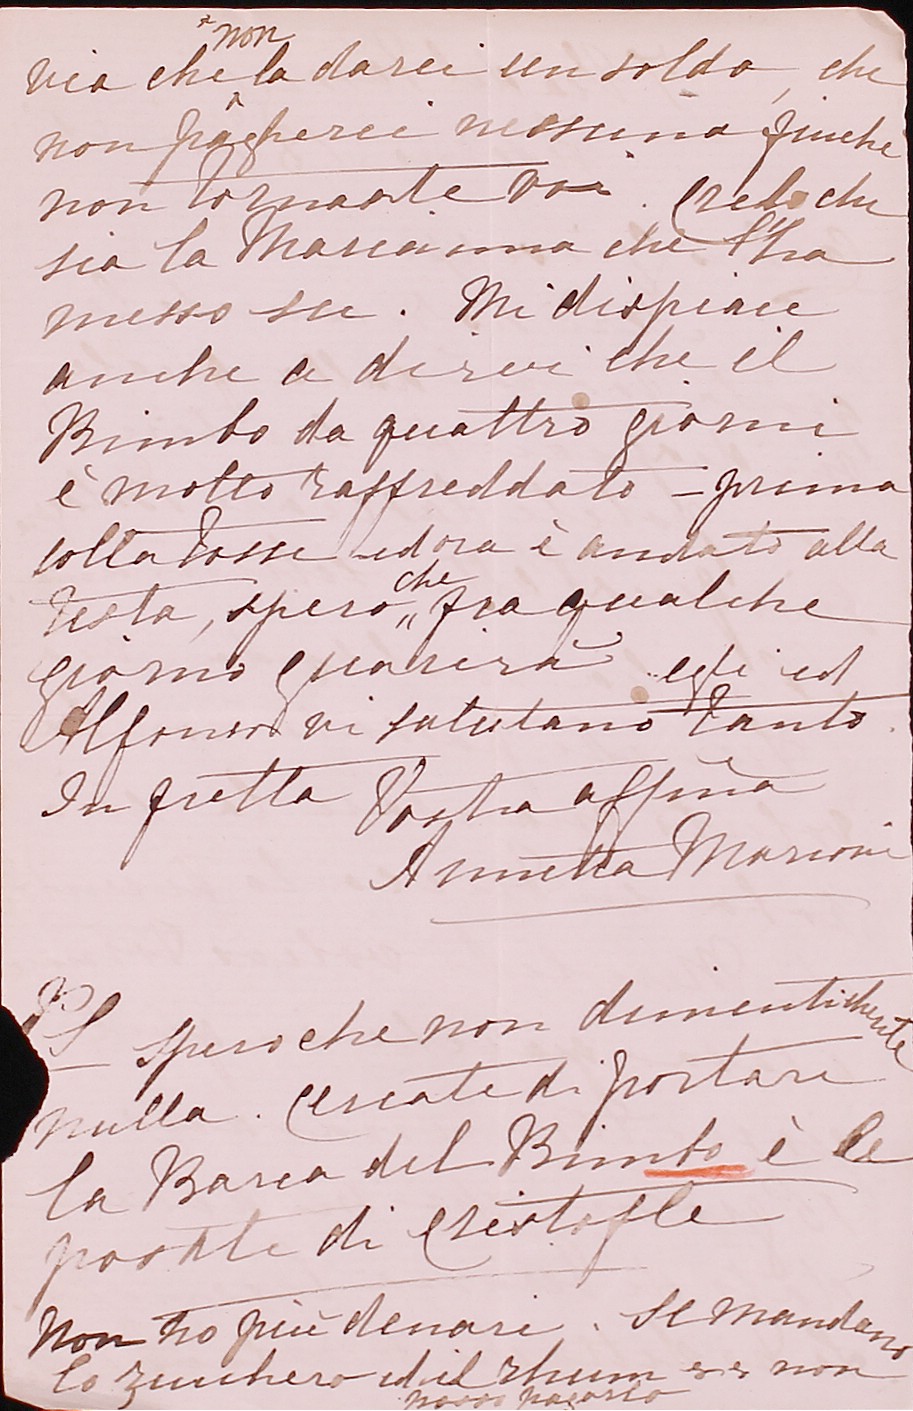 via che non la darei un soldo, che
non pagherei nessuno finchè
non tornaste voi. Credo che
sia la Marianna che l'ha
messo su. Mi dispiace
anche a dirvi che il
Bimbo da quattro giorni
è molto raffreddato – prima
colla tosse ed ora è andato alla
testa, spero che fra qualche
giorno guarirà egli ed
Alfonso vi salutano tanto.
In fretta Vostra affma
Annetta Marioni
PS Spero che non dimenticherete
nulla. Cercate di portare
la Barca del Bimbo è le
posate di Cristofle
Non ho più denari. Se mandano
lo zucchero ed il rhum non
posso pagarlo